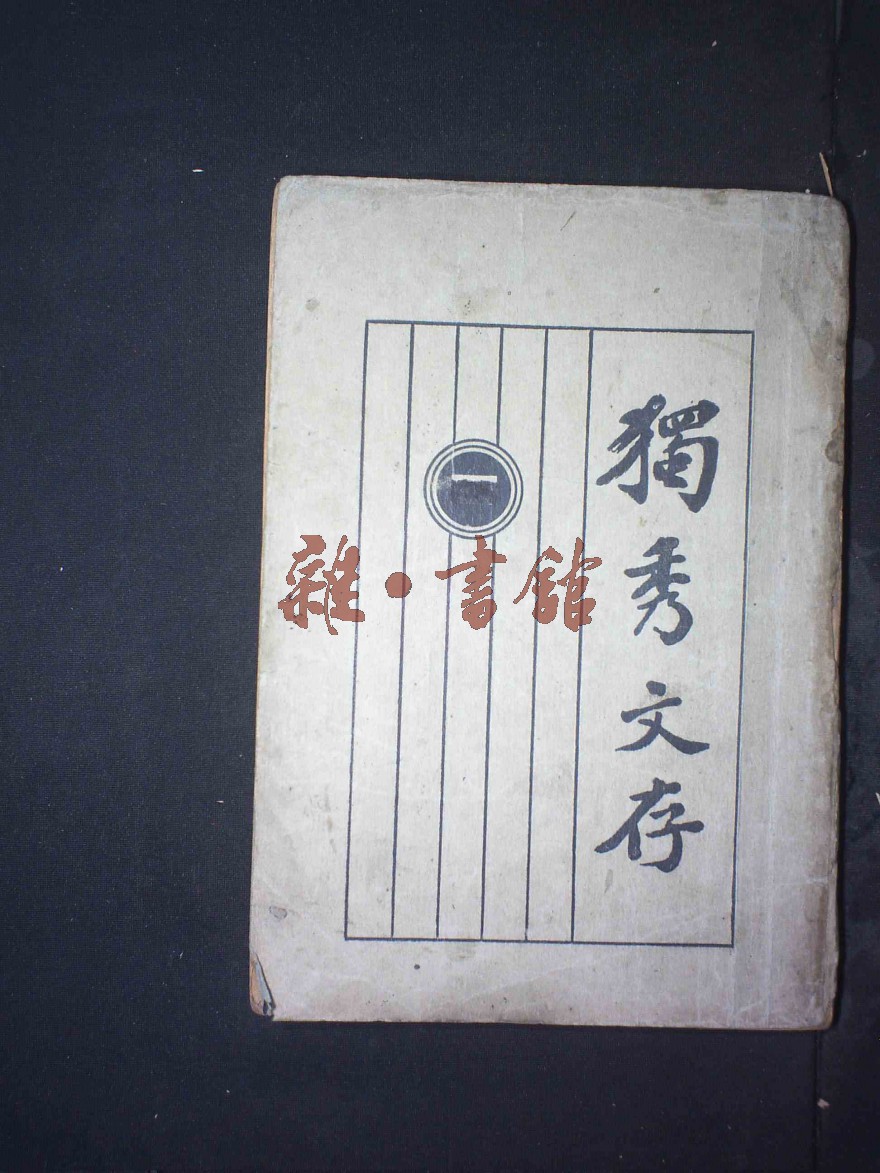 獨秀文存
一
雜·書館